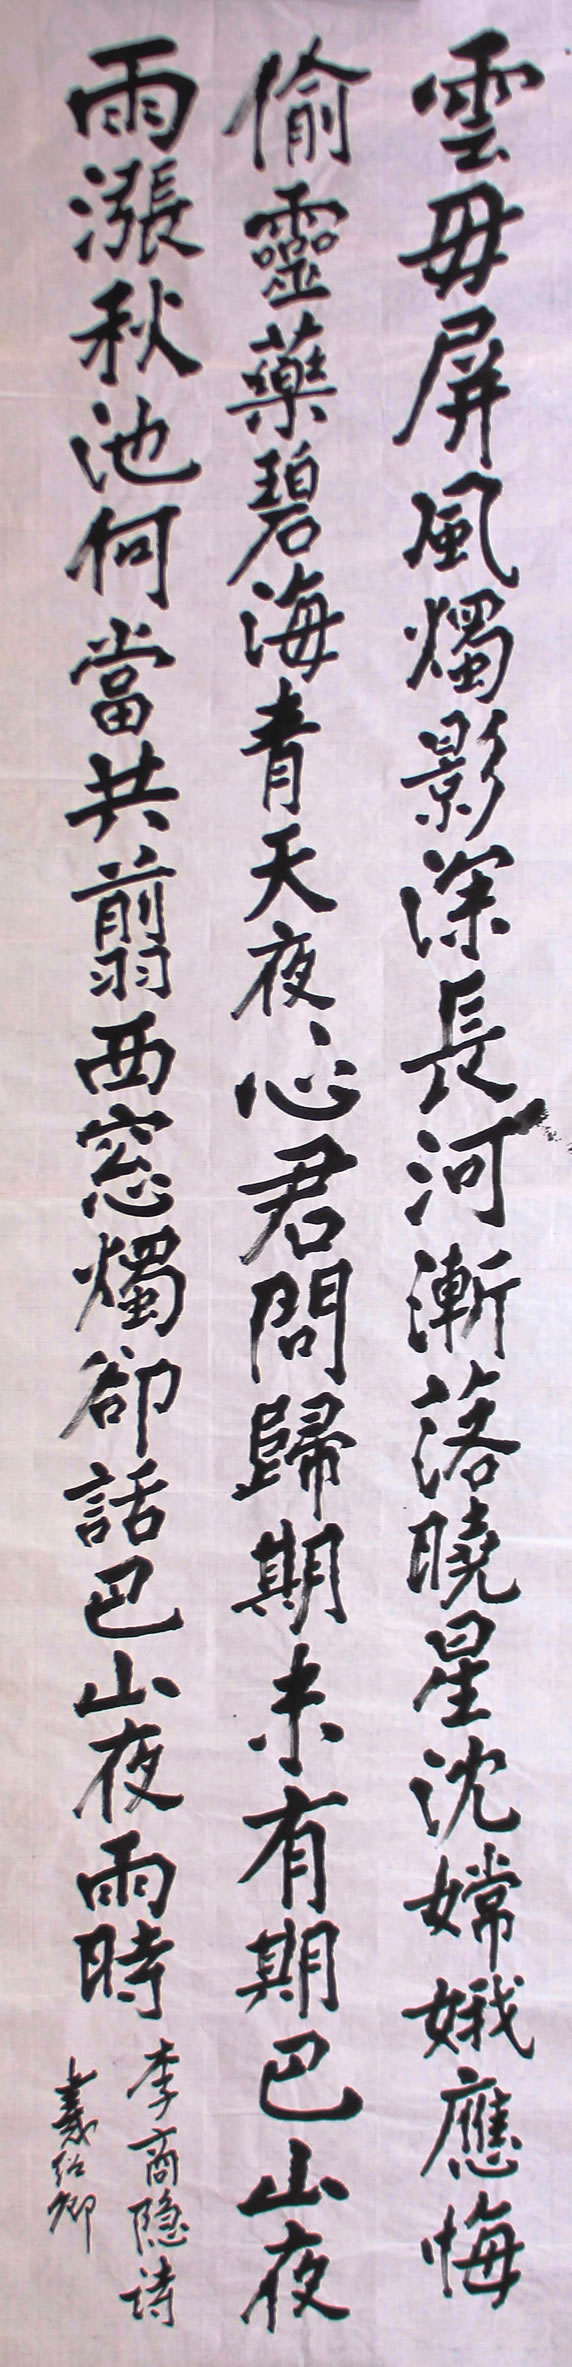 雲毋屏風燭影深長河漸落曉星沈嫦娥應悔
偷靈藥碧海青天夜、心君問歸期未有期巴山夜
雨漲秋池何當共翦西窓燭卻話巴山夜雨時
李商隐诗